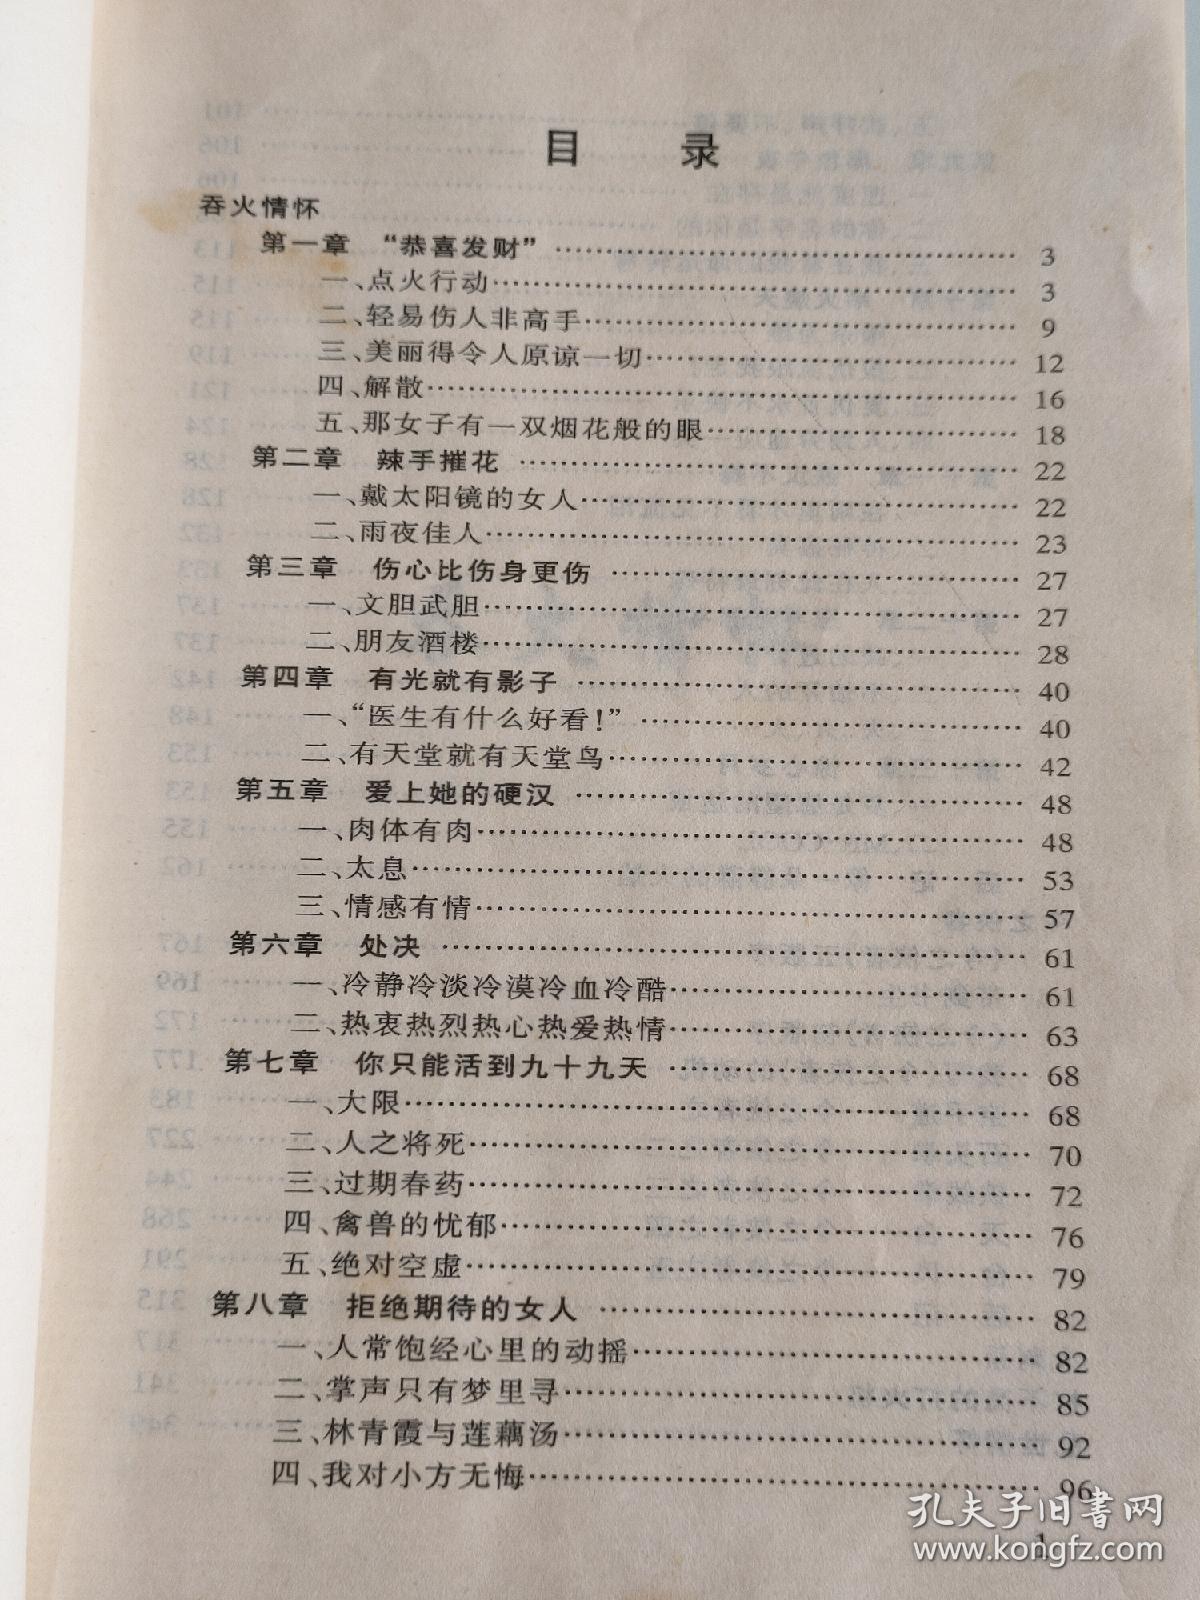 目 录
吞火情怀
第一章 “恭喜发财” 3
一、点火行动 3
二、轻易伤人非高手 9
三、美丽得令人原谅一切 12
四、解散 16
五、那女子有一双烟花般的眼 18
第二章 辣手摧花 22
一、戴太阳镜的女人 22
二、雨夜佳人 23
第三章 伤心比伤身更伤 27
一、文胆武胆 27
二、朋友酒楼 28
第四章 有光就有影子 40
一、“医生有什么好看！” 40
二、有天堂就有天堂鸟 42
第五章 爱上她的硬汉 48
一、肉体有肉 48
二、太息 53
三、情感有情 57
第六章 处决 61
一、冷静冷淡冷漠冷血冷酷 61
二、热衷热烈热心热爱热情 63
第七章 你只能活到九十九天 68
一、大限 68
二、人之将死 70
三、过期春药 72
四、禽兽的忧郁 76
五、绝对空虚 79
第八章 拒绝期待的女人 82
一、人常饱经心里的动摇 82
二、掌声只有梦里寻 85
三、林青霞与莲藕汤 92
四、我对小方无悔 96
1
孔夫子旧書网
www.kongfz.com